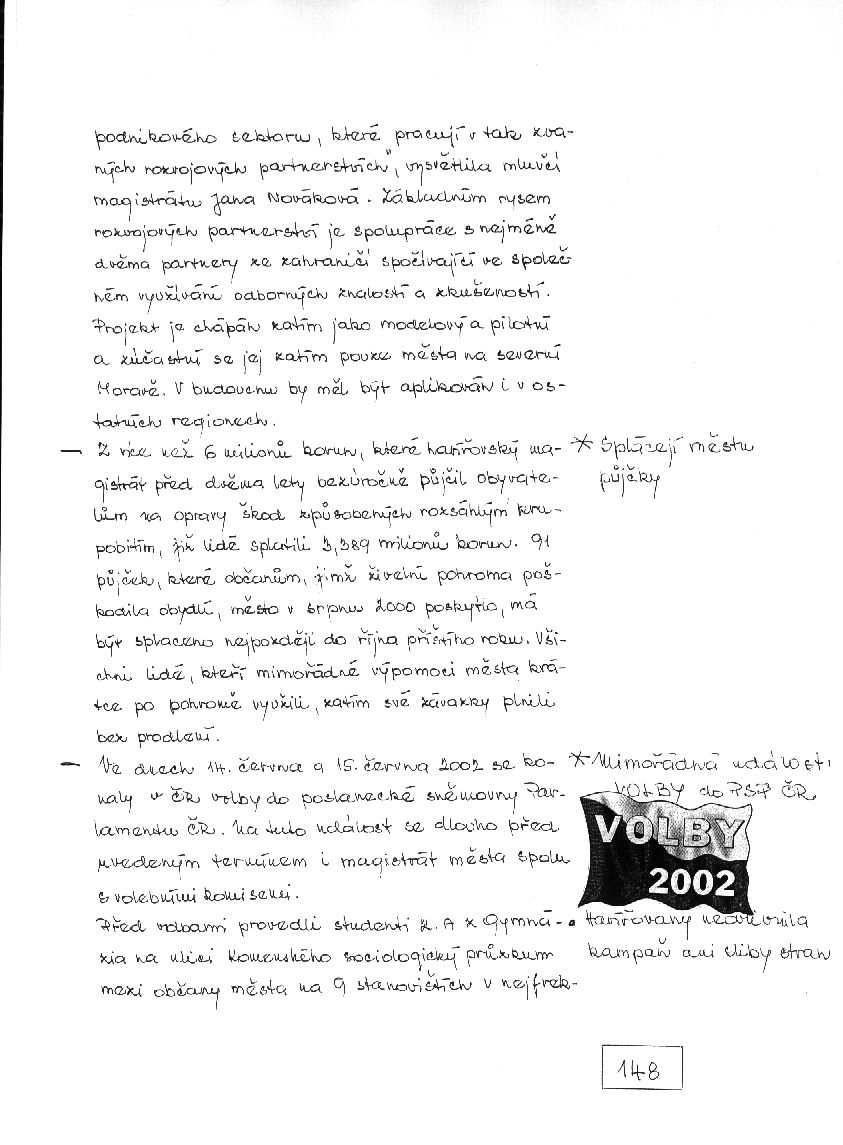 podnikového sektoru, které pracují v tak zva-
ných rozvojových partnerstvích", vysvětlila mluvčí
magistrátu Jana Nováková. Základním rysem
rozvojových partnerství je spolupráce s nejméně
dvěma partnery ze zahraničí spočívající ve společ
ném využívání odborných znalostí a zkušeností.
Projekt je chápán zatím jako modelový a pilotní
a zúčastní se jej zatím pouze města na severní
Moravě. V budoucnu by měl být aplikován i v os-
tatních regionech.
— Z více než 6 milionů korun, které havířovský ma-
gistrát před dvěma lety bezúročně půjčil obyvate-
lům na opravy škod způsobených rozsáhlým kru-
pobitím, již lidé splatili 3,389 milionů korun. 91
půjček, které občanům, jimž živelní pohroma poš-
kodila obydlí, město v srpnu 2000 poskytlo, má
být splaceno nejpozději do října příštího roku. Vši-
chni lidé, kteří mimořádné výpomoci města krá-
tce po pohromě využili, zatím své závazky plnili
bez prodlení.
* Splácejí městu
půjčky
— Ve dnech 14. června a 15. června 2002 se ko-
naly v ČR volby do poslanecké sněmovny Par-
lamentu ČR. Na tuto událost se dlouho před
uvedeným termínem i magistrát města spolu
s volebními komisemi.
* Mimořádná událost:
VOLBY do PSP ČR
VOLBY
2002
Před volbami provedli studenti K. A z Gymná-
zia na ulici Komenského sociologický průzkum
mezi občany města na 9 stanovištích v nejfrek-
Havířovany neovlivnila
kampaň ani sliby stran
148